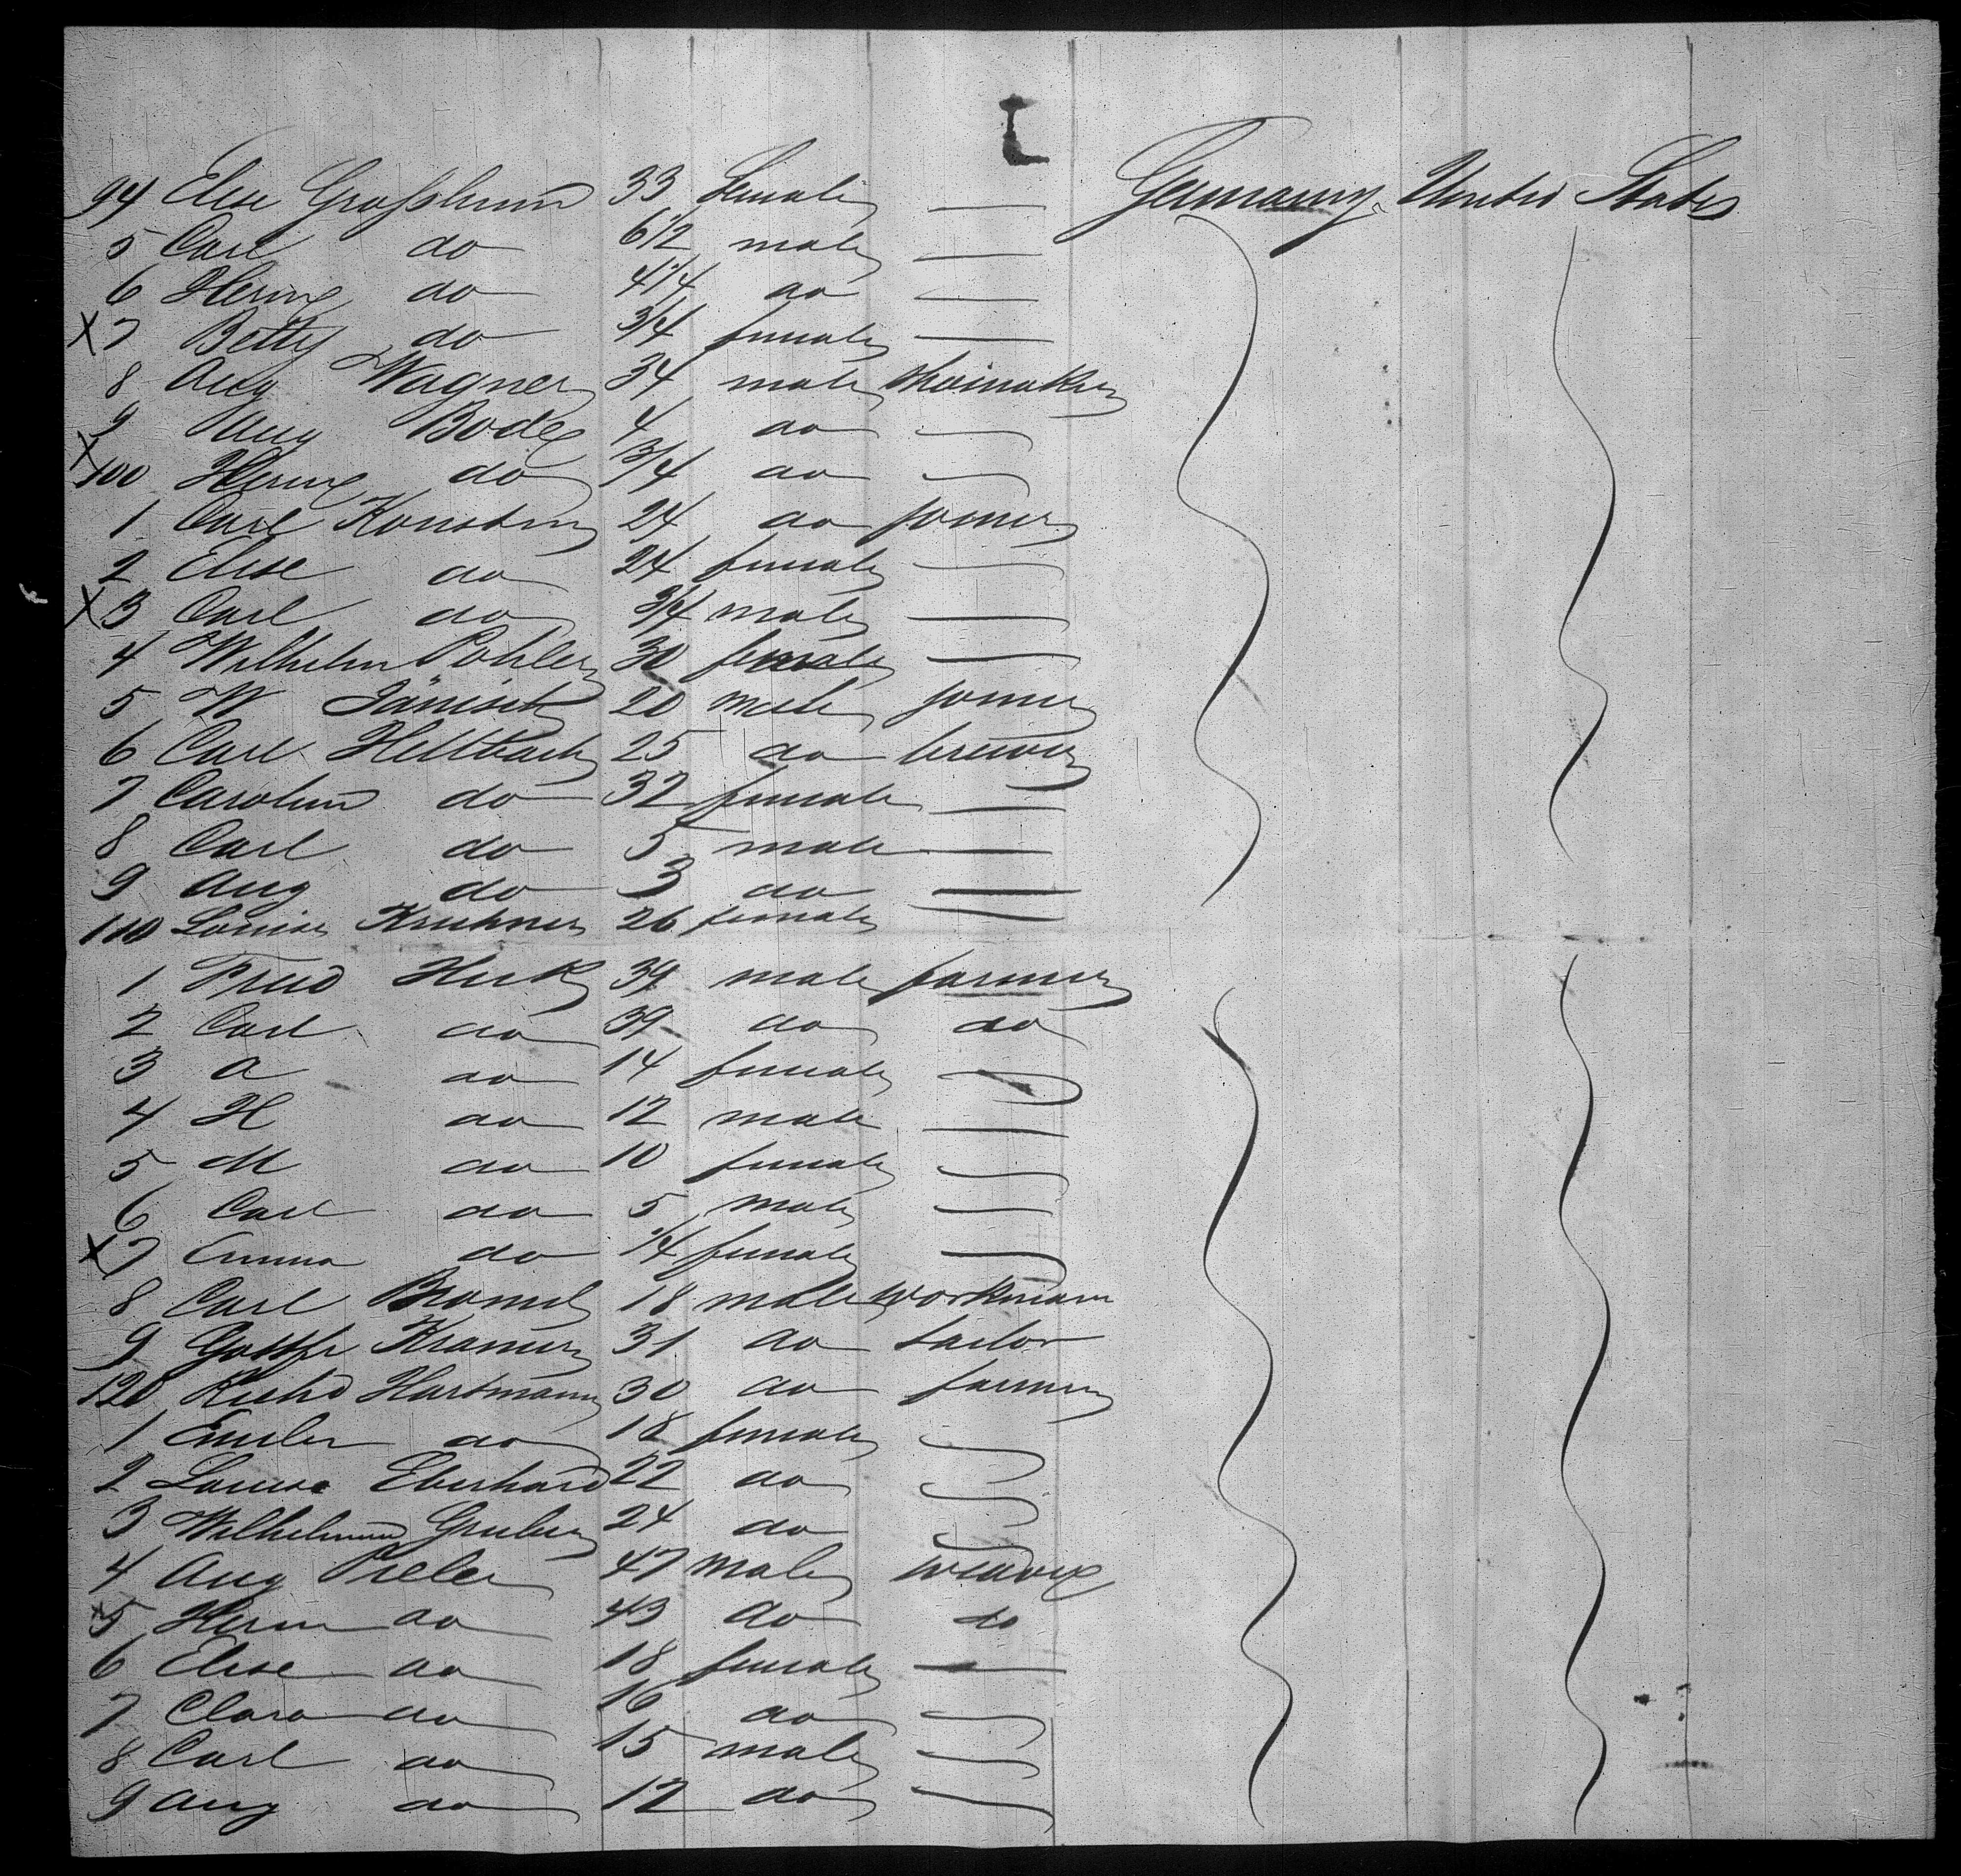 94 Elise Großhenn 33 female — Germany United States
5 Carl do 6 1/2 male —
6 Herm do 4 1/4 do —
X 7 Betty do 3/4 female —
8 Aug Wagner 34 male shoimaker
9 Aug Bode 4 do —
X 100 Herm do 3/4 do —
1 Carl 24 do joiner
2 Elise do 24 female —
X 3 Carl do 3/4 male —
4 Wilhelm Pohler 30 female —
5 W Jänisch 20 male joiner
6 Carl Hellbach 25 do brewer
7 Carolina do 32 female —
8 Carl do 5 male —
9 Aug do 3 do —
110 Louise 26 female —
1 Fried 39 male farmer
2 Carl do 39 do do
3 A do 14 female —
4 H do 12 male —
5 M do 10 female —
6 Carl do 5 male —
X 7 Emma do 1/4 female —
8 Carl 18 male workman
9 Gottfr Kramer 31 do tailor
120 Richd Hartmann 30 do farmer
1 do 18 female —
2 Louise Eberhard 22 do —
3 Wilhelmine Gruber 24 do —
4 Aug Pieler 47 male weaver
X 5 Herm do 43 do do
6 Elise do 18 female —
7 Clara do 16 do —
8 Carl do 15 male —
9 Aug do 12 do —